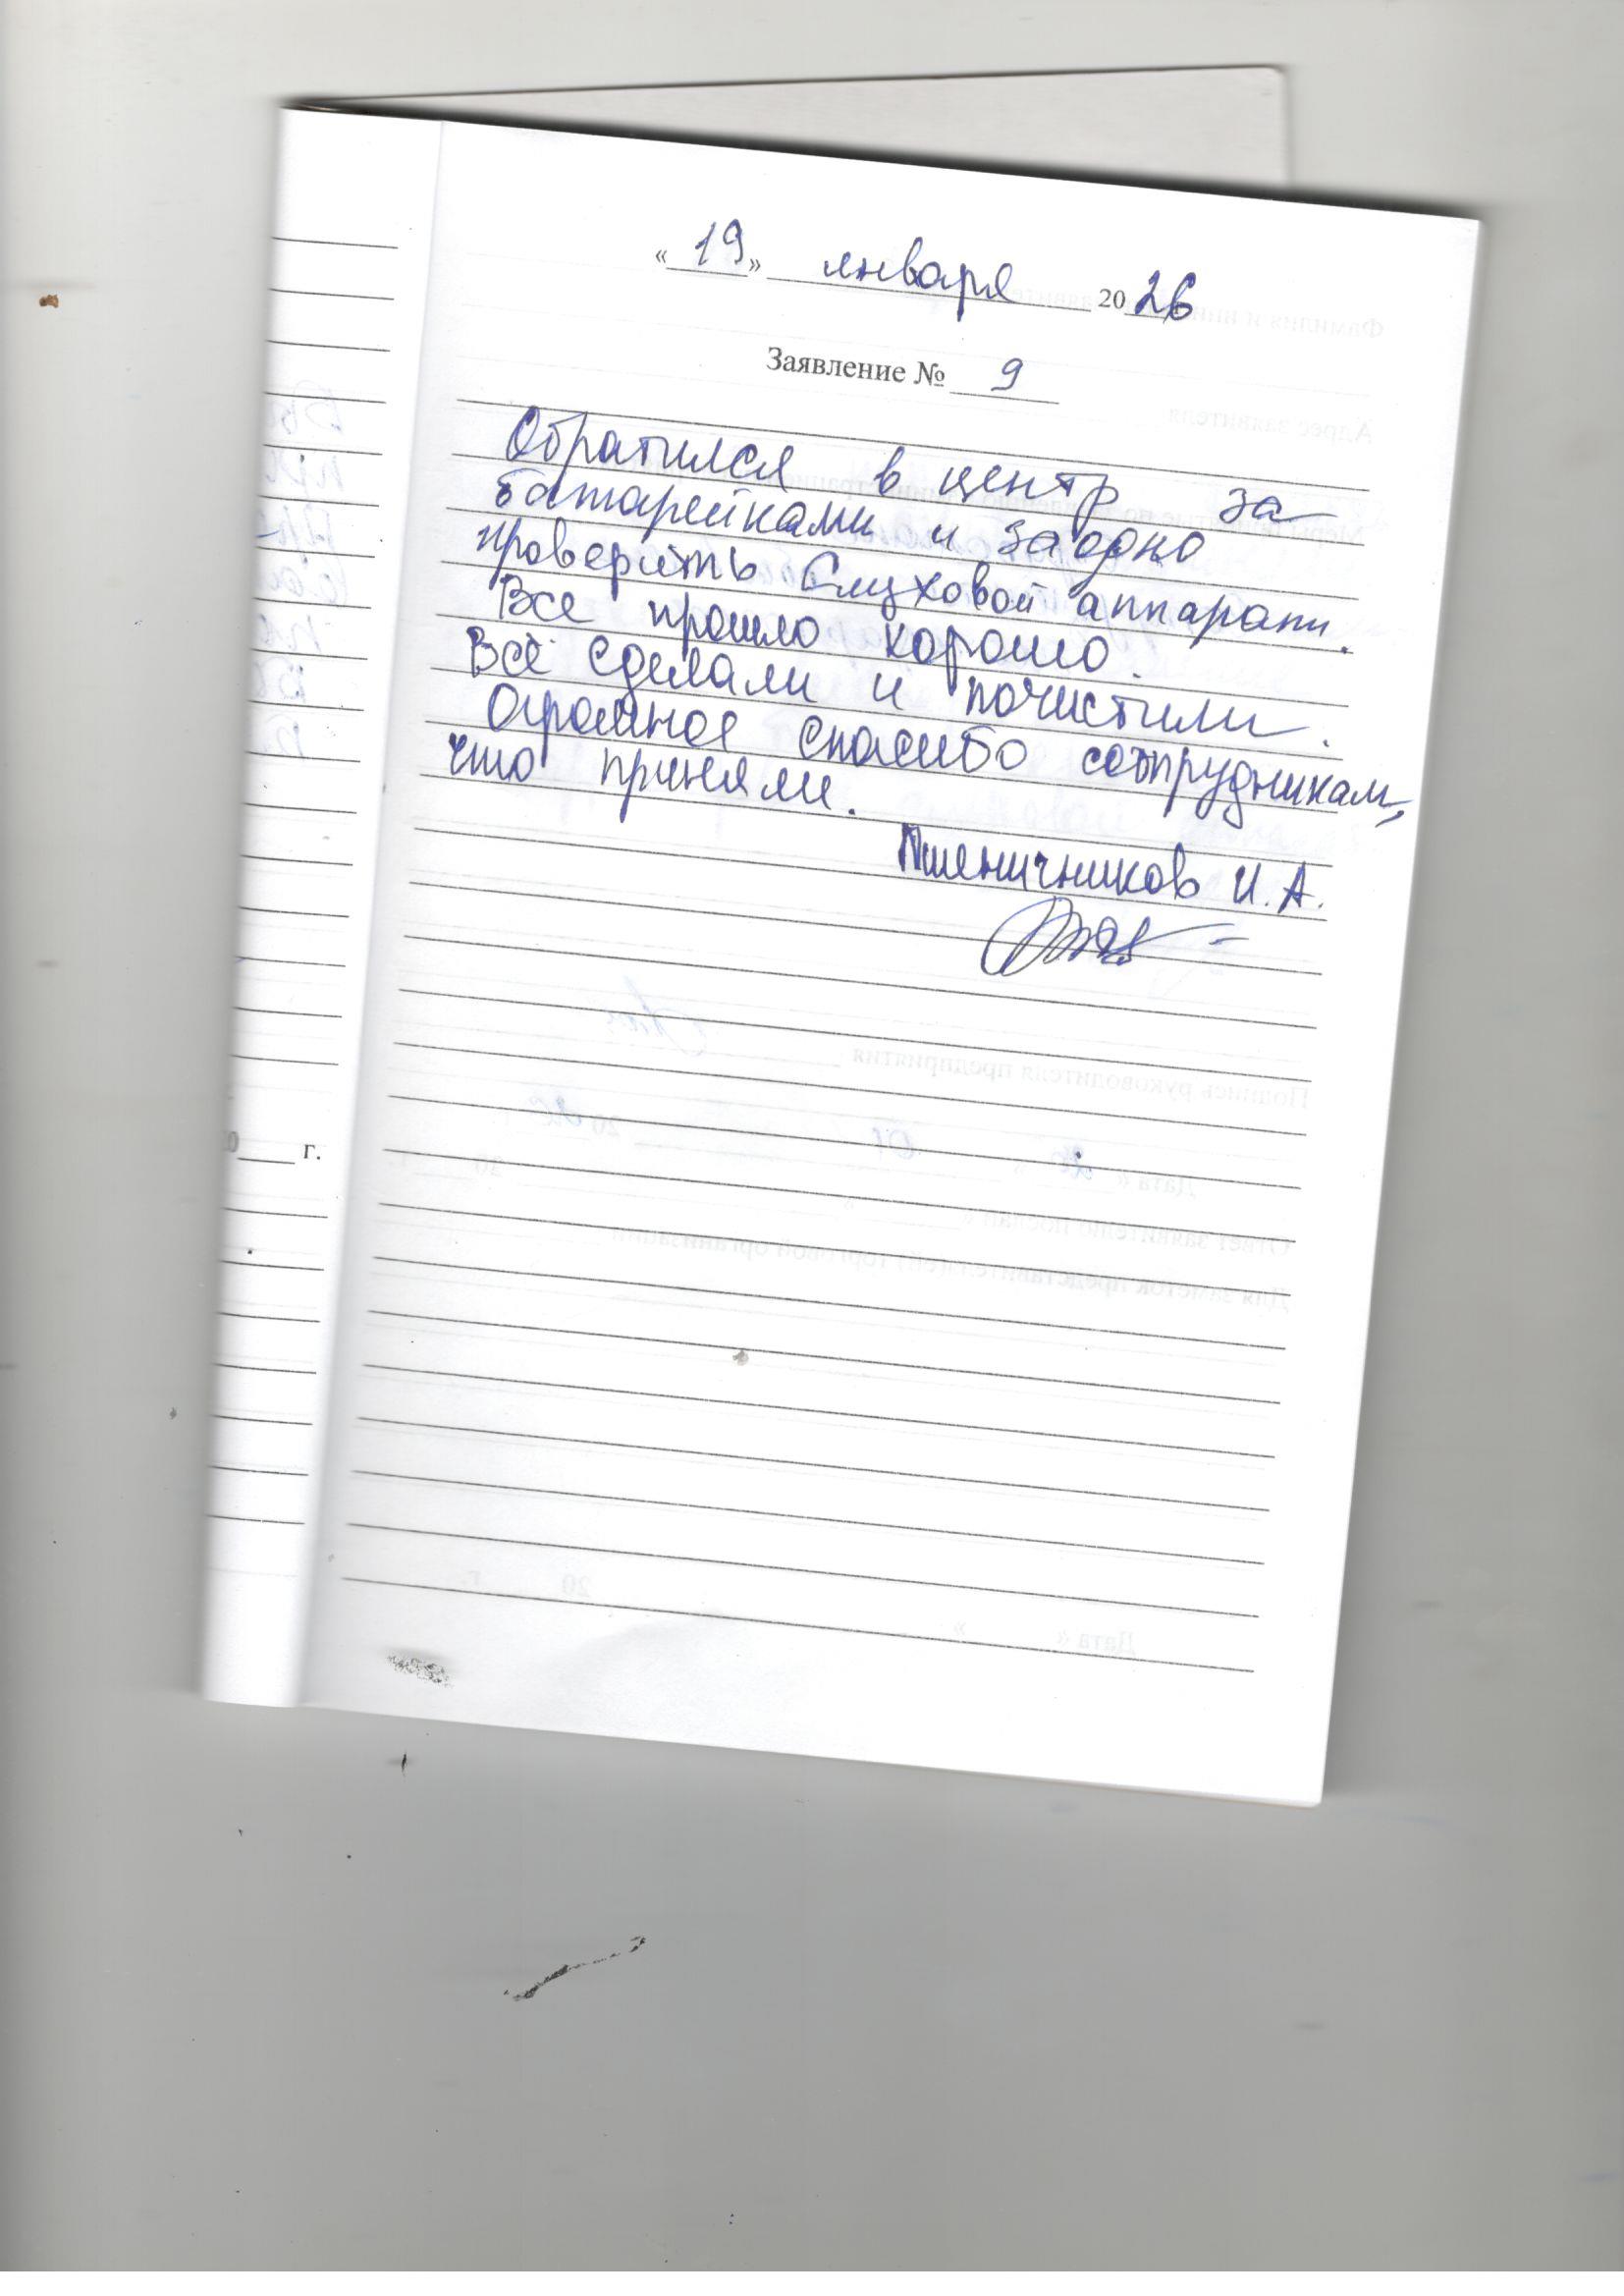 «19» января 2026
Заявление № 9
Обратился в центр за
батарейками и заодно
проверить Слуховой аппарат.
Все прошло хорошо.
Всё сделали и почистили.
Огромное спасибо сотрудникам,
что приняли.
Пшеничников И. А.
г.